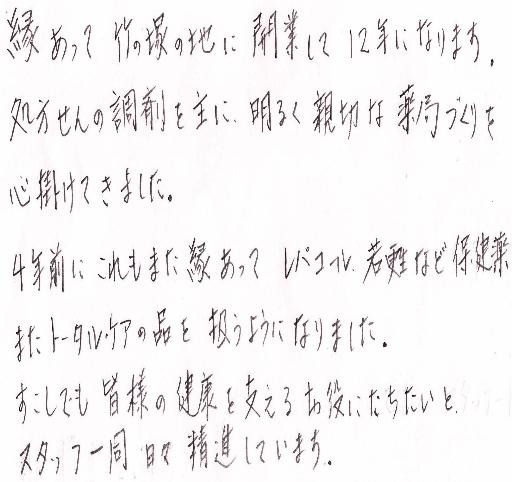 縁あって 竹の塚の地に 開業して 12年になります。
処方せんの調剤を主に、明るく親切な薬局づくりを
心掛けてきました。
4年前に これもまた縁あって レバコール、若甦など保健薬
またトータルケアの品を 扱うようになりました。
すこしでも 皆様の健康を支えるお役にたちたいと、
スタッフ一同 日々 精進しています。